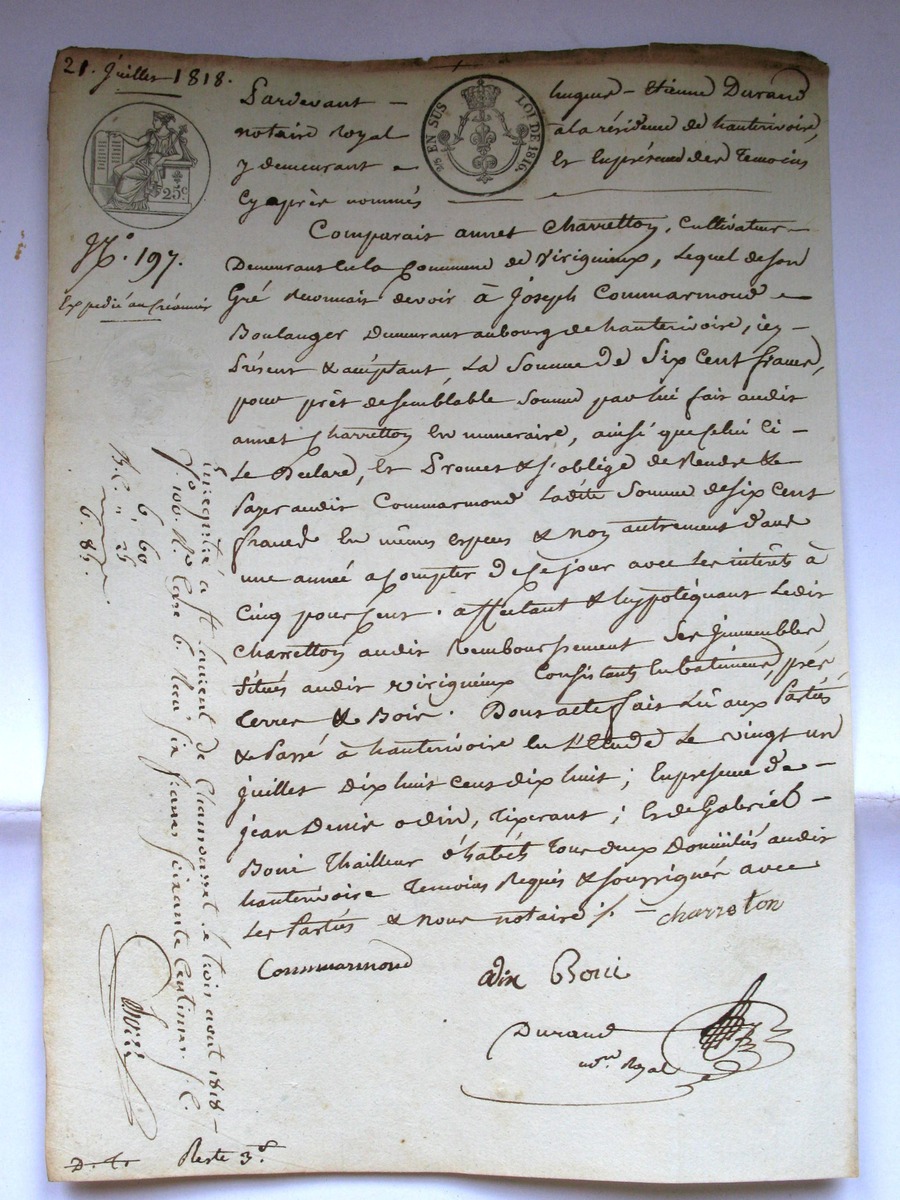 21. Juillet 1818.
Pardevant hugues - Etienne Durand
notaire royal a la résidence de hauterivoire,
y demeurant Et En présence des Temoins
Cy après nommés
2/10 EN SUS LOI DE 1816.
25c.
No. 197.
Expédié au Créancier
Comparait annet Charretton, Cultivateur
Demeurant En la Commune de Virigneux, Lequel de son
Gré Reconnait devoir à Joseph Commarmond
Boulanger Demeurant au bourg de hauterivoire, icy
Présent & acceptant, La Somme de Six Cent francs,
pour prêt de semblable Somme par lui fait audit
annet Charretton En numeraire, ainsi que Celui Ci
Le Declare, Et Promet & s'oblige de Rendre &
Payer audit Commarmond Ladite Somme de six Cent
francs En mêmes especes & non autrement dans
une année a Compter de Ce jour avec Les intérêts à
Cinq pour Cent. affectant & hyppotéquant Ledit
Charretton audit Remboursement Ses immeubles
Situés audit Virigneux Consistants En batiments, prés
Terres & Bois. Dont acte fait Lû aux Parties
& Passé à hauterivoire En L'Etude Le vingt un
juillet Dix huit cent dix huit; En présence de
jean Denis odin, Tixerant; Et de Gabriel
Boni Thailleur d'habits Tous deux Domiciliés audit
hauterivoire Temoins Requis & soussignés avec
Les Parties & Nous notaire ;/.
charreton
Commarmond
odin Boni
Durand
not.re Royal
Enregistré à St Laurent de Chamousset le trois aout 1818
f.o 100. R.o Case 6. Reçu six francs soixante Centimes. S. C.
6, 60
6. 85.
Reste 3.d